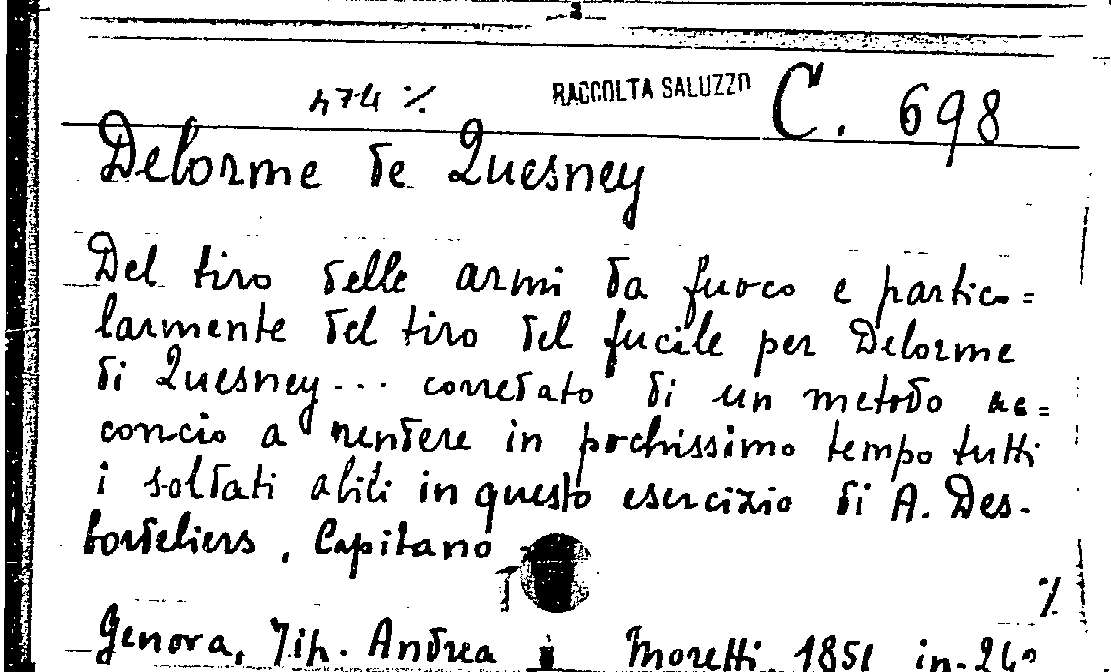 474 %
RACCOLTA SALUZZO C. 698
Delorme de Quesney
Del tiro delle armi da fuoco e partico=
larmente del tiro del fucile per Delorme
di Quesney... corredato di un metodo ac=
concio a rendere in pochissimo tempo tutti
i soldati abili in questo esercizio di A. Des-
bordeliers, Capitano
%
Genova, Tip. Andrea Moretti, 1851 in-24°